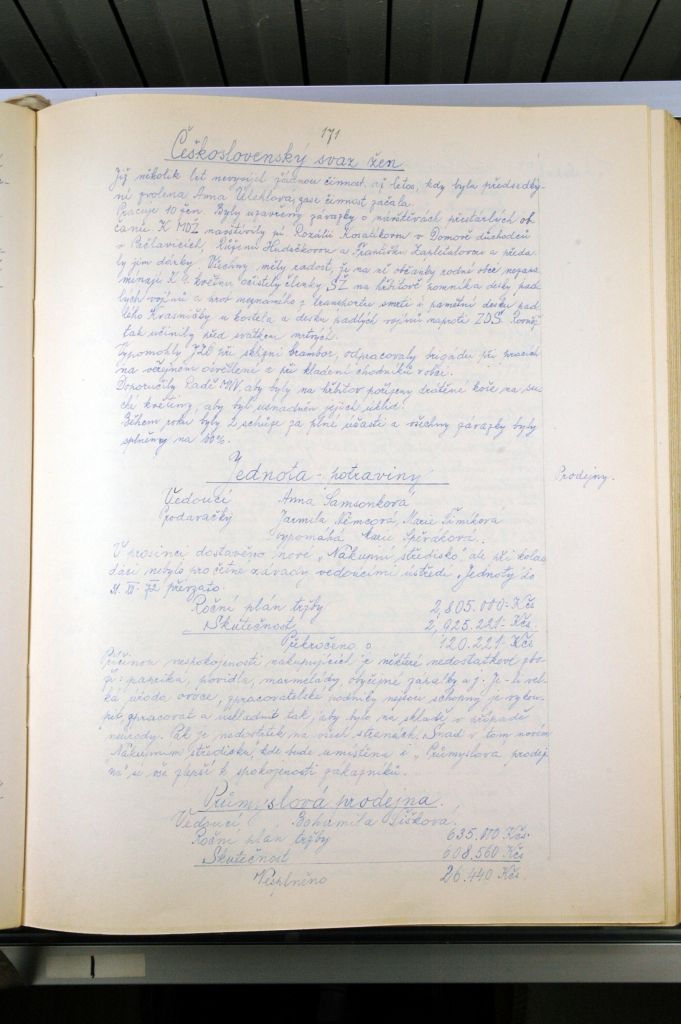 171
Československý svaz žen
Již několik let nevyvíjel žádnou činnost, až letos, kdy byla předsedky-
ní zvolena Anna zase činnost začala.
Pracuje 10 žen. Byly uzavřeny závazky o návštěvách přestárlých ob-
čanů. K MDŽ navštívily pí Rozálii Kosalíkovu v Domově důchodců
v Počtavicích, Růženu Hudečkovou a Františku a předa-
ly jim dárky. Všechny měly radost, že na ně občanky rodné obce nezapo-
mínají. K 9. květnu očistily členky SŽ na hřbitově pomníka desky pad-
lých vojínů a hrob neznámého z transportu smrti i pamětní desku pad-
lého u kostela a desku padlých vojínů naproti ZDŠ. Rovněž
tak učinily před svátkem mrtvých.
Vypomohly JZD při sklizni brambor, odpracovaly brigádu při pracech
na veřejném osvětlení a při kladení chodníků v obci.
Doporučily Radě MNV, aby byly na hřbitov pořízeny drátěné koše na su-
ché květiny, aby byl usnadněn jejich úklid.
Během roku byly 2 schůze za plné účasti a všechny závazky byly
splněny na 100%.
Jednota - potraviny
Prodejny.
Vedoucí Anna Samsonková
Prodavačky Jarmila Němcová, Marie Šimíková
vypomáhá Marie Spěváková.
V prosinci dostavěno nové „Nákupní středisko“ ale při kolau-
daci nebylo pro četné závady vedoucími ústředí „Jednoty“ do
31. XII. 72 převzato.
Roční plán tržby 2,805.000 Kčs
Skutečnost 2,925.221 Kčs
Překročeno o 120.221 Kčs
Příčinou nespokojenosti nakupujících je některé nedostatkové zbo-
ží: paprika, povidla, marmelády, obyčejné zápalky a j. Je-li vel-
ká úroda ovoce, zpracovatelské podniky nejsou schopny je vykou-
pit, zpracovat a uskladnit tak, aby bylo na skladě v případě
neúrody. Pak je nedostatek na všech stranách. Snad v tom novém
Nákupním středisku, kde bude umístěna i „Průmyslová prodej-
na“ se vše zlepší k spokojenosti zákazníků.
Průmyslová prodejna.
Vedoucí: Bohumila Píšková.
Roční plán tržby 635.000 Kčs
Skutečnost 608.560 Kčs
Nesplněno 26.440 Kčs